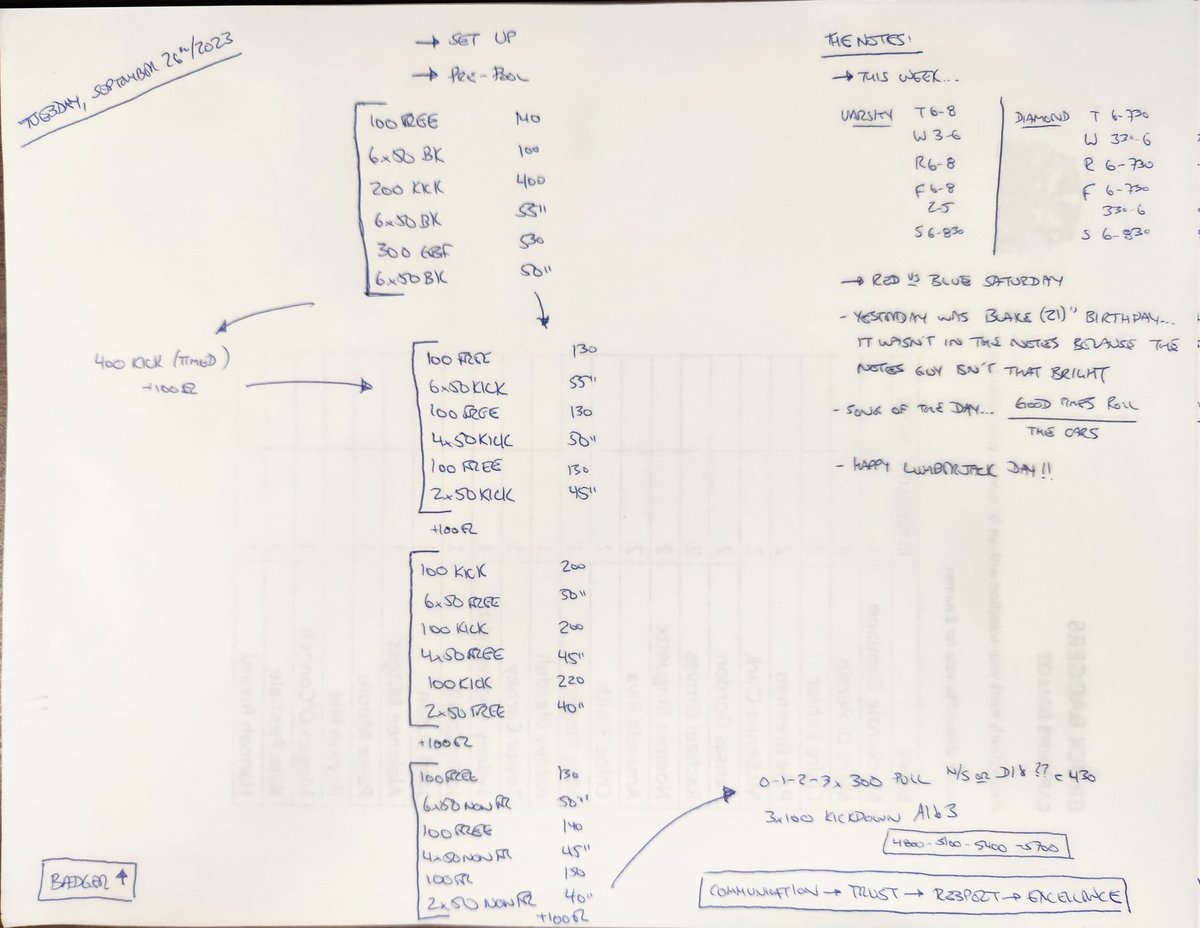 TUESDAY, SEPTEMBER 26TH/2023
→ SET UP
→ PRE-POOL
100 FREE 140
6x50 BK 100
200 KICK 400
6x50 BK 55"
300 GBF 530
6x50 BK 50"
400 KICK (TIMED)
+100 FR
100 FREE 130
6x50 KICK 55"
100 FREE 130
4x50 KICK 50"
100 FREE 130
2x50 KICK 45"
+100 FR
100 KICK 200
6x50 FREE 50"
100 KICK 200
4x50 FREE 45"
100 KICK 220
2x50 FREE 40"
+100 FR
100 FREE 130
6x50 NON FR 50"
100 FREE 140
4x50 NON FR 45"
100 FR 150
2x50 NON FR 40"
+100 FR
BADGER ↑
THE NOTES:
→ THIS WEEK...
VARSITY T 6-8
W 3-6
R 6-8
F 6-8
2-5
S 6-830
DIAMOND T 6-730
W 330-6
R 6-730
F 6-730
330-6
S 6-830
→ RED VS BLUE SATURDAY
- YESTERDAY WAS BLAKE (21)" BIRTHDAY...
IT WASN'T IN THE NOTES BECAUSE THE
NOTES GUY ISN'T THAT BRIGHT
- SONG OF THE DAY... GOOD TIMES ROLL
THE CARS
- HAPPY LUMBERJACK DAY!!
0-1-2-3 x 300 PULL N/S OR D/8 ?? c 430
3x100 KICKDOWN A1b3
4800-5100-5400-5700
COMMUNICATION → TRUST → RESPECT → EXCELLENCE